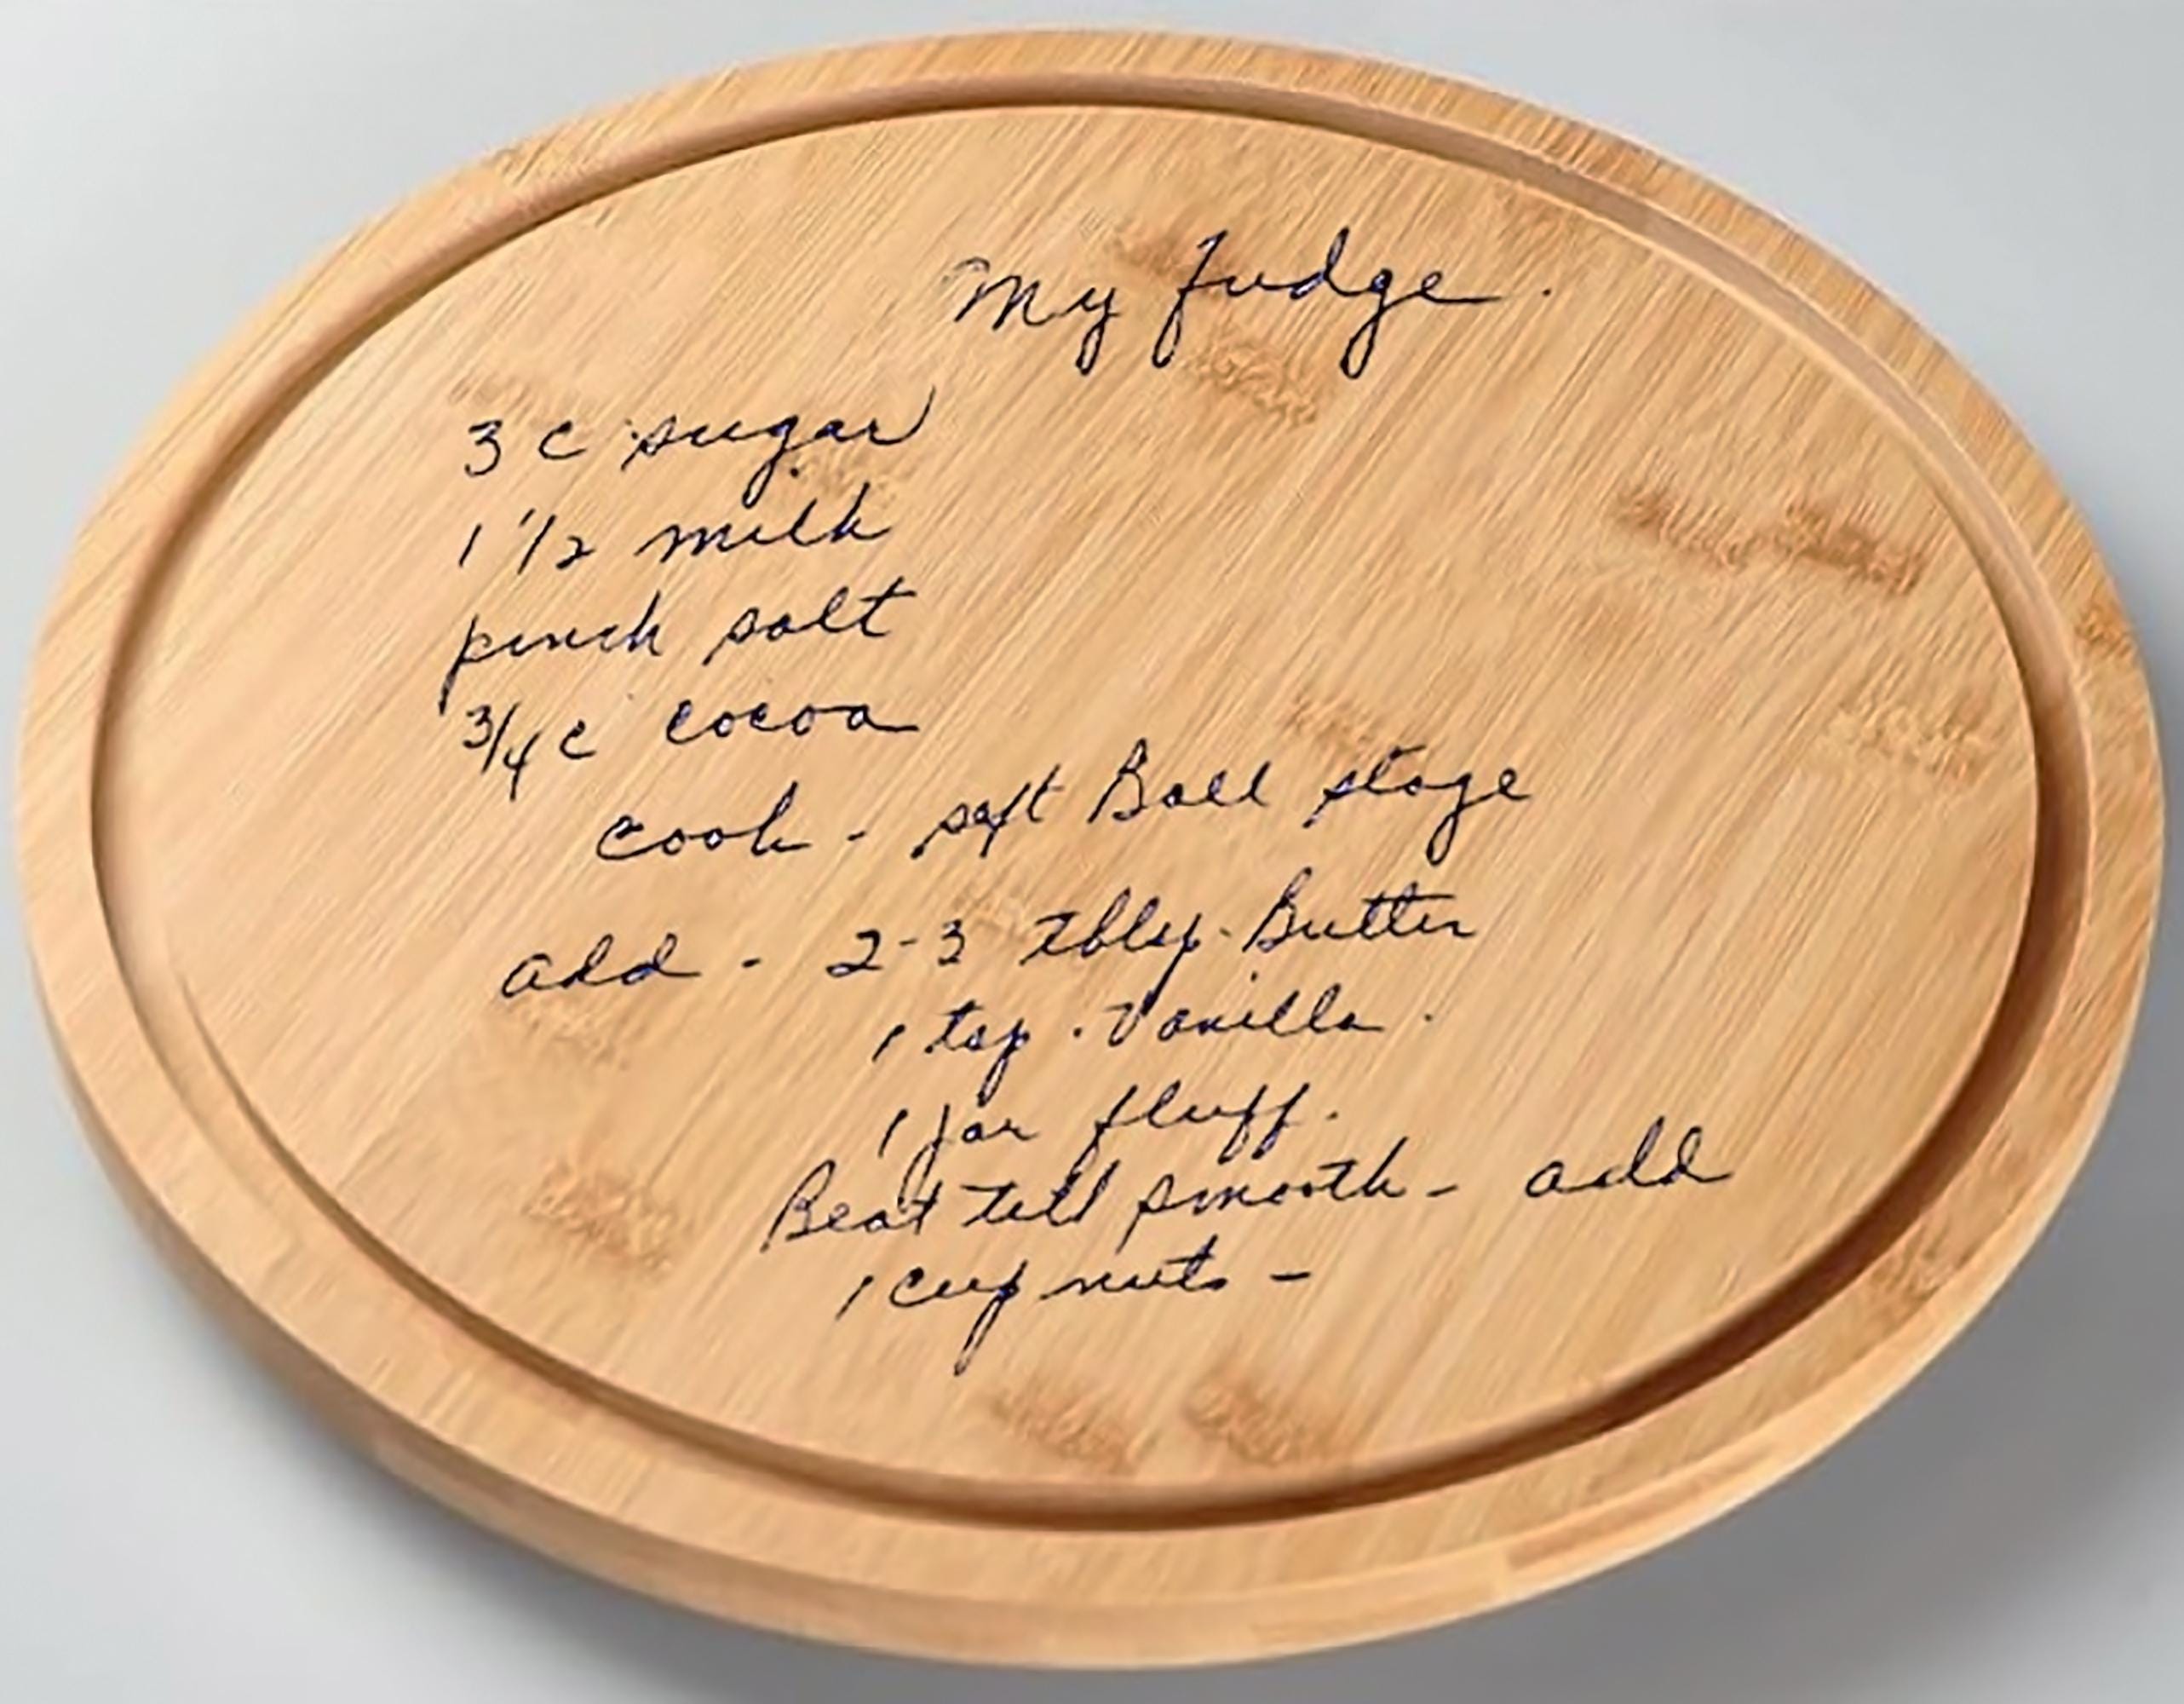 My fudge.
3 c sugar
1 1/2 milk
pinch salt
3/4 c cocoa
cook - soft Ball stage
add - 2-3 tblsp. Butter
1 tsp. Vanilla.
1 jar fluff.
Beat till smooth - add
1 cup nuts -